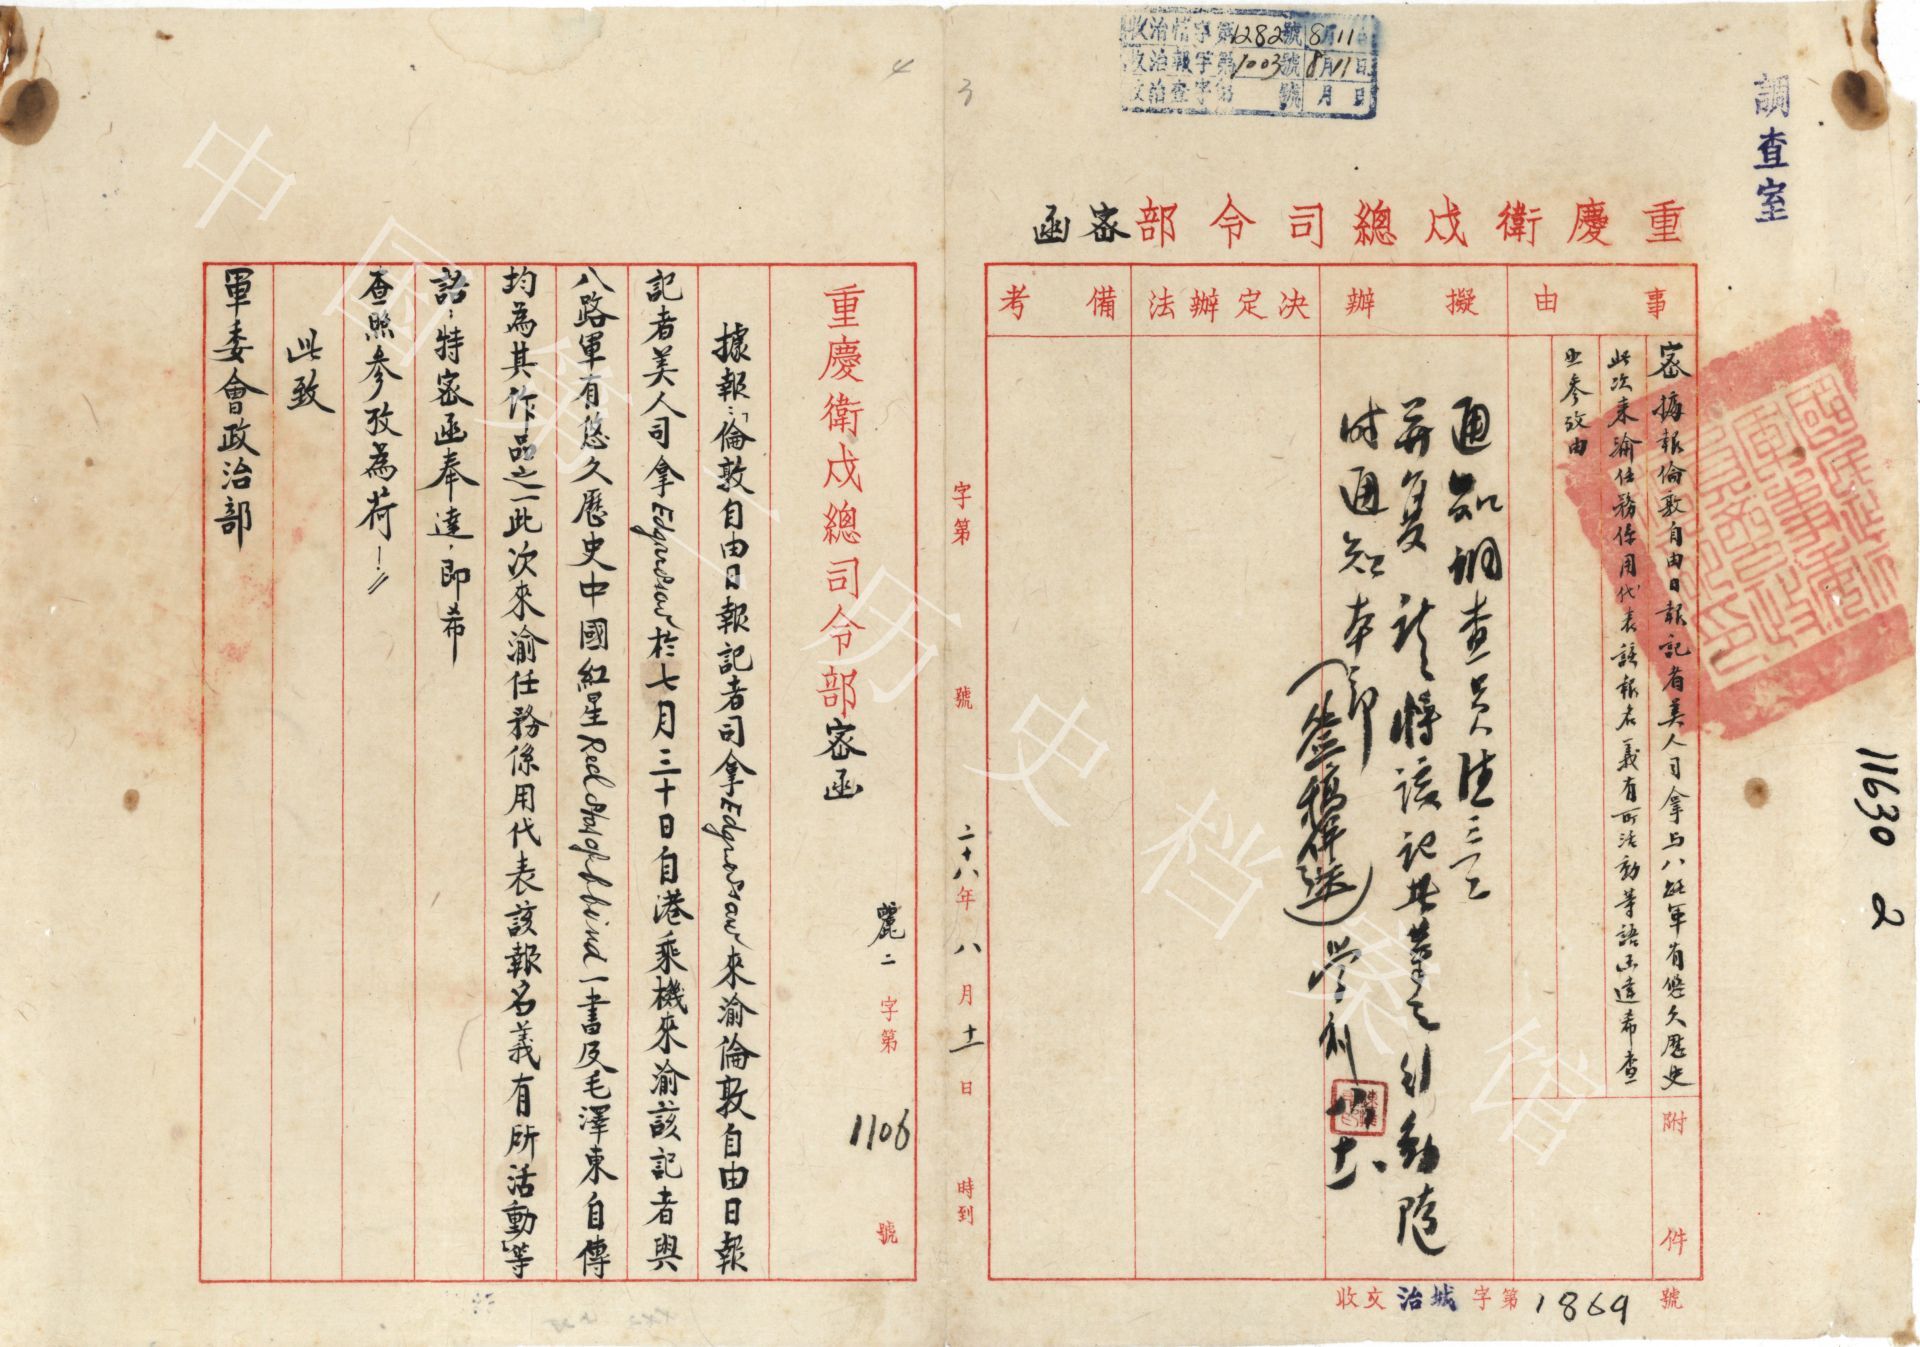 收治情字第1282號8月11日
收治報字第1003號8月11日
收治查字第 號 月 日
調查室
重慶衛戍總司令部密函
事由
密 據報倫敦自由日報記者美人司拿与八路軍有悠久歷史
此次來渝任務係用代表該報名義有所活動等語函達希查
照參攷由
附件
擬辦
通知調查員
并复 將該記者之行動隨
时通知本部
(簽稿併送)
決定辦法
備考
收文治城字第1869號
11630
2
3
4
字第 號 二十八年八月十一日 時到
重慶衛戍總司令部密函
麗二字第1106號
據報:「倫敦自由日報記者司拿Edgar Snow來渝倫敦自由日報
記者美人司拿Edgar Snow於七月三十日自港乘機來渝該記者與
八路軍有悠久歷史中國紅星Red Star of China一書及毛澤東自傳
均為其作品之一此次來渝任務係用代表該報名義有所活動」等
語,特密函奉達,即希
查照參攷為荷!
此致
軍委會政治部
中国第二历史档案馆